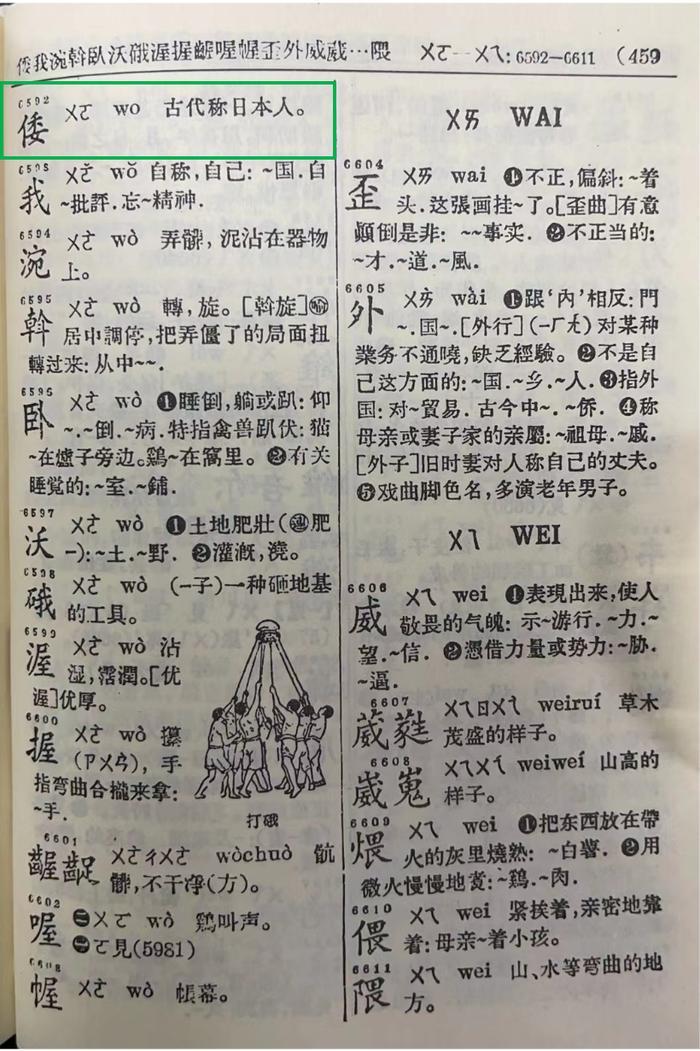 倭我涴斡臥沃硪渥握齷喔幄歪外威葳…隈 ㄨㄛ—ㄨㄟ: 6592—6611 (459
6592
倭 ㄨㄛ wo 古代称日本人。
我 ㄨㄛˇ wǒ 自称,自己: ~国. 自
~批評. 忘~精神.
6594
涴 ㄨㄛˋ wò 弄髒, 泥沾在器物
上。
6595
斡 ㄨㄛˋ wò 轉, 旋。[斡旋]
居中調停, 把弄僵了的局面扭
轉过来: 从中~~.
卧 ㄨㄛˋ wò ❶睡倒, 躺或趴: 仰
~. ~倒. ~病. 特指禽兽趴伏: 猫
~在爐子旁边。鷄~在窩里。❷有关
睡覚的: ~室. ~鋪.
6597
沃 ㄨㄛˋ wò ❶土地肥壯(肥
—): ~土. ~野. ❷灌溉, 澆。
6598
硪 ㄨㄛˋ wò (—子)一种砸地基
的工具。
6599
渥 ㄨㄛˋ wò 沾
湿, 霑潤。[优
渥]优厚。
6600
握 ㄨㄛˋ wò 攥
(ㄗㄨㄢˋ), 手
指弯曲合攏来拿:
~手.
打硪
6601
齷齪 ㄨㄛˋㄔㄨㄛˋ wòchuò 骯
髒, 不干净(方)。
6602
喔 ㊀ㄨㄛˋ wò 鷄叫声。
㊁ㄛ見(5981)
幄 ㄨㄛˋ wò 帳幕。
ㄨㄞ WAI
6604
歪 ㄨㄞ wai ❶不正, 偏斜: ~着
头. 这張画挂~了。[歪曲]有意
顛倒是非: ~~事实. ❷不正当的:
~才. ~道. ~風.
6605
外 ㄨㄞˋ wài ❶跟‘內’相反: 門
~. 国~. [外行](—ㄏㄤˊ)对某种
業务不通曉, 缺乏經驗。❷不是自
己这方面的: ~国. ~乡. ~人. ❸指外
国: 对~貿易. 古今中~. ~侨. ❹称
母亲或妻子家的亲屬: ~祖母. ~戚.
[外子]旧时妻对人称自己的丈夫。
❺戏曲脚色名, 多演老年男子。
ㄨㄟ WEI
6606
威 ㄨㄟ wei ❶表現出来, 使人
敬畏的气魄: 示~游行. ~力. ~
望. ~信. ❷憑借力量或势力: ~胁.
~逼.
6607
葳蕤 ㄨㄟㄖㄨㄟˊ weiruí 草木
茂盛的样子。
6608
崴嵬 ㄨㄟㄨㄟˊ weiweí 山高的
样子。
6609
煨 ㄨㄟ wei ❶把东西放在帶
火的灰里燒熟: ~白薯. ❷用
微火慢慢地煑: ~鷄. ~肉.
6610
偎 ㄨㄟ wei 紧挨着, 亲密地靠
着: 母亲~着小孩。
6611
隈 ㄨㄟ wei 山、水等弯曲的地
方。